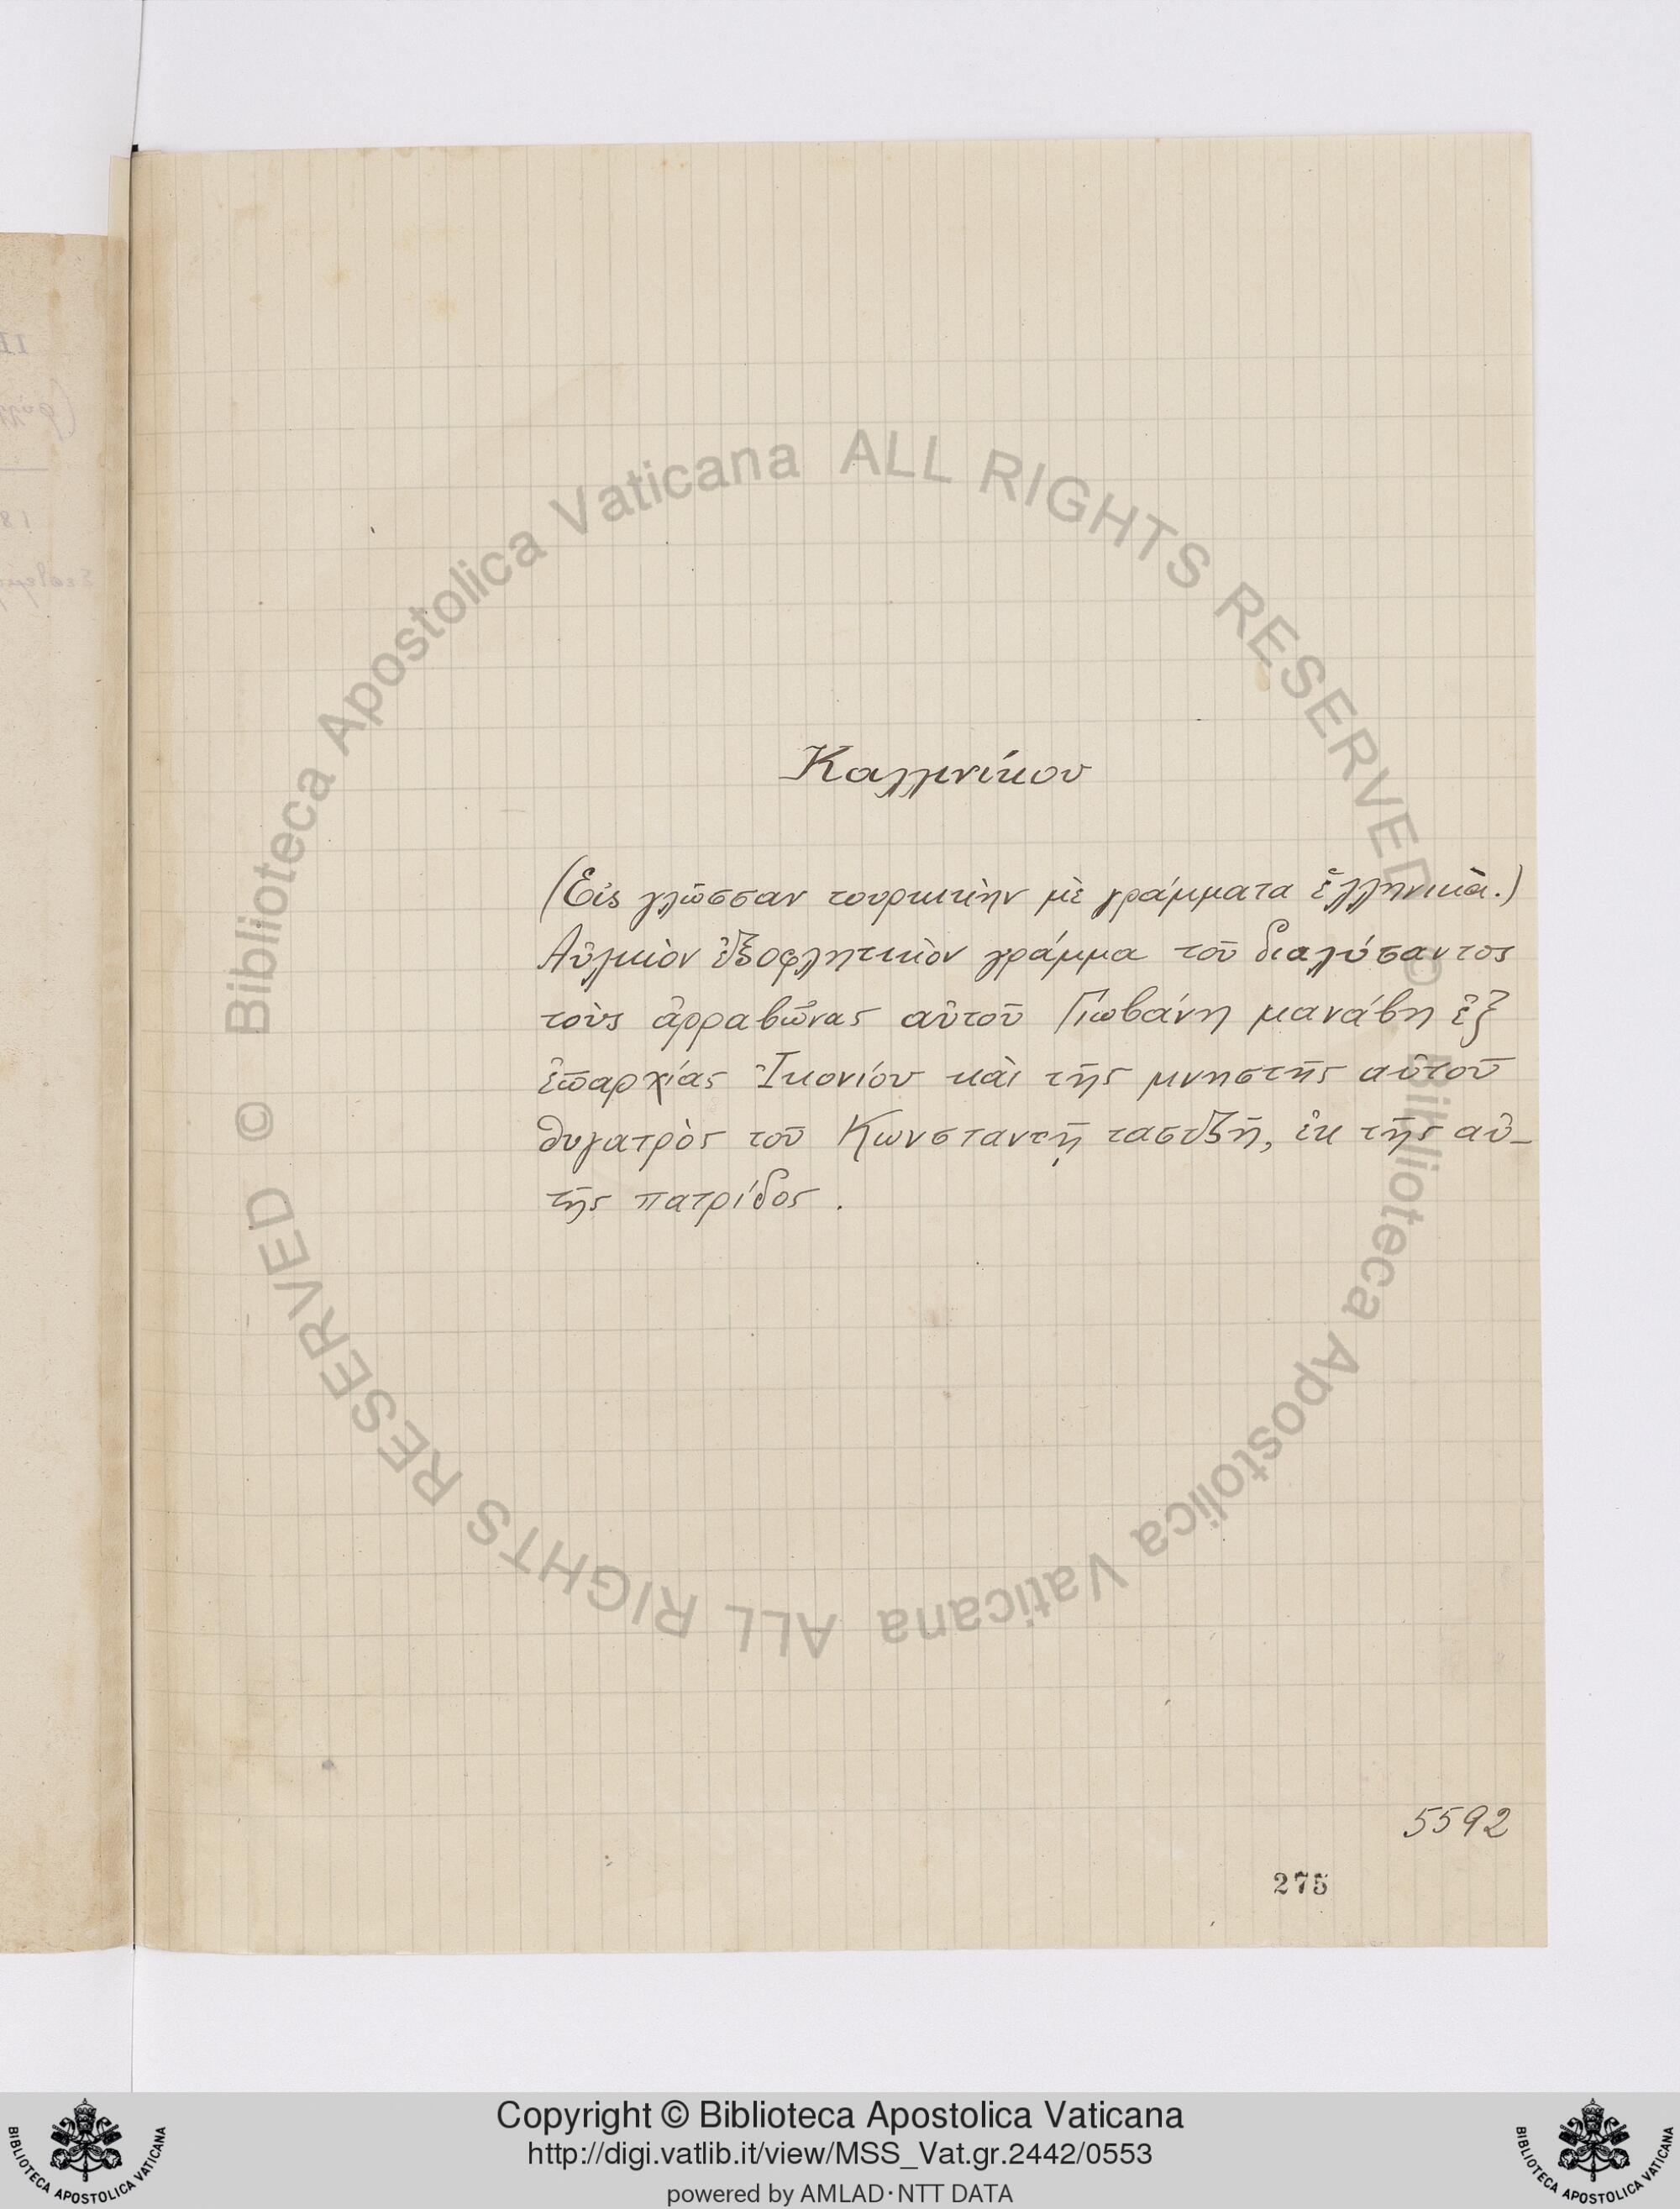 Καλλινίκου
(Εἰς γλῶσσαν τουρκικὴν μὲ γράμματα ἑλληνικὰ.)
Αὐλικὸν ἐξοφλητικὸν γράμμα τοῦ διαλύσαντος
τοὺς ἀρραβῶνας αὐτοῦ Γιωβάνη μανάβη ἐξ
ἐπαρχίας Ἰκονίου καὶ τῆς μνηστῆς αὐτοῦ
θυγατρὸς τοῦ Κωνσταντῆ ταστζῆ, ἐκ τῆς αὐ-
τῆς πατρίδος.
5592
275
© Biblioteca Apostolica Vaticana ALL RIGHTS RESERVED
© Biblioteca Apostolica Vaticana ALL RIGHTS RESERVED
Copyright © Biblioteca Apostolica Vaticana
http://digi.vatlib.it/view/MSS_Vat.gr.2442/0553
powered by AMLAD·NTT DATA
BIBLIOTECA APOSTOLICA VATICANA
BIBLIOTECA APOSTOLICA VATICANA